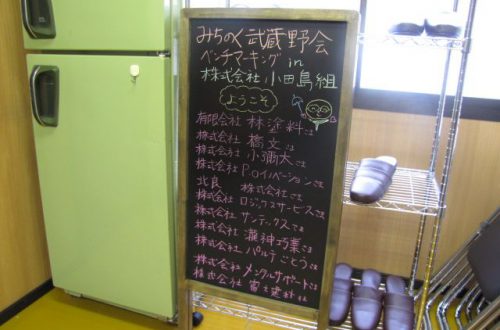 みちのく武蔵野会
ベンチマーキング in
株式会社 小田島組
ようこそ
有限会社 林塗料さま
株式会社 橋文さま
株式会社 小彌太さま
株式会社 P.O イノベーションさま
北良 株式会社さま
株式会社 ロジックスサービスさま
株式会社 サンテックスさま
株式会社 瀧神巧業さま
株式会社 パルテごとうさま
株式会社 メンタルサポートさま
株式会社 富士建材社